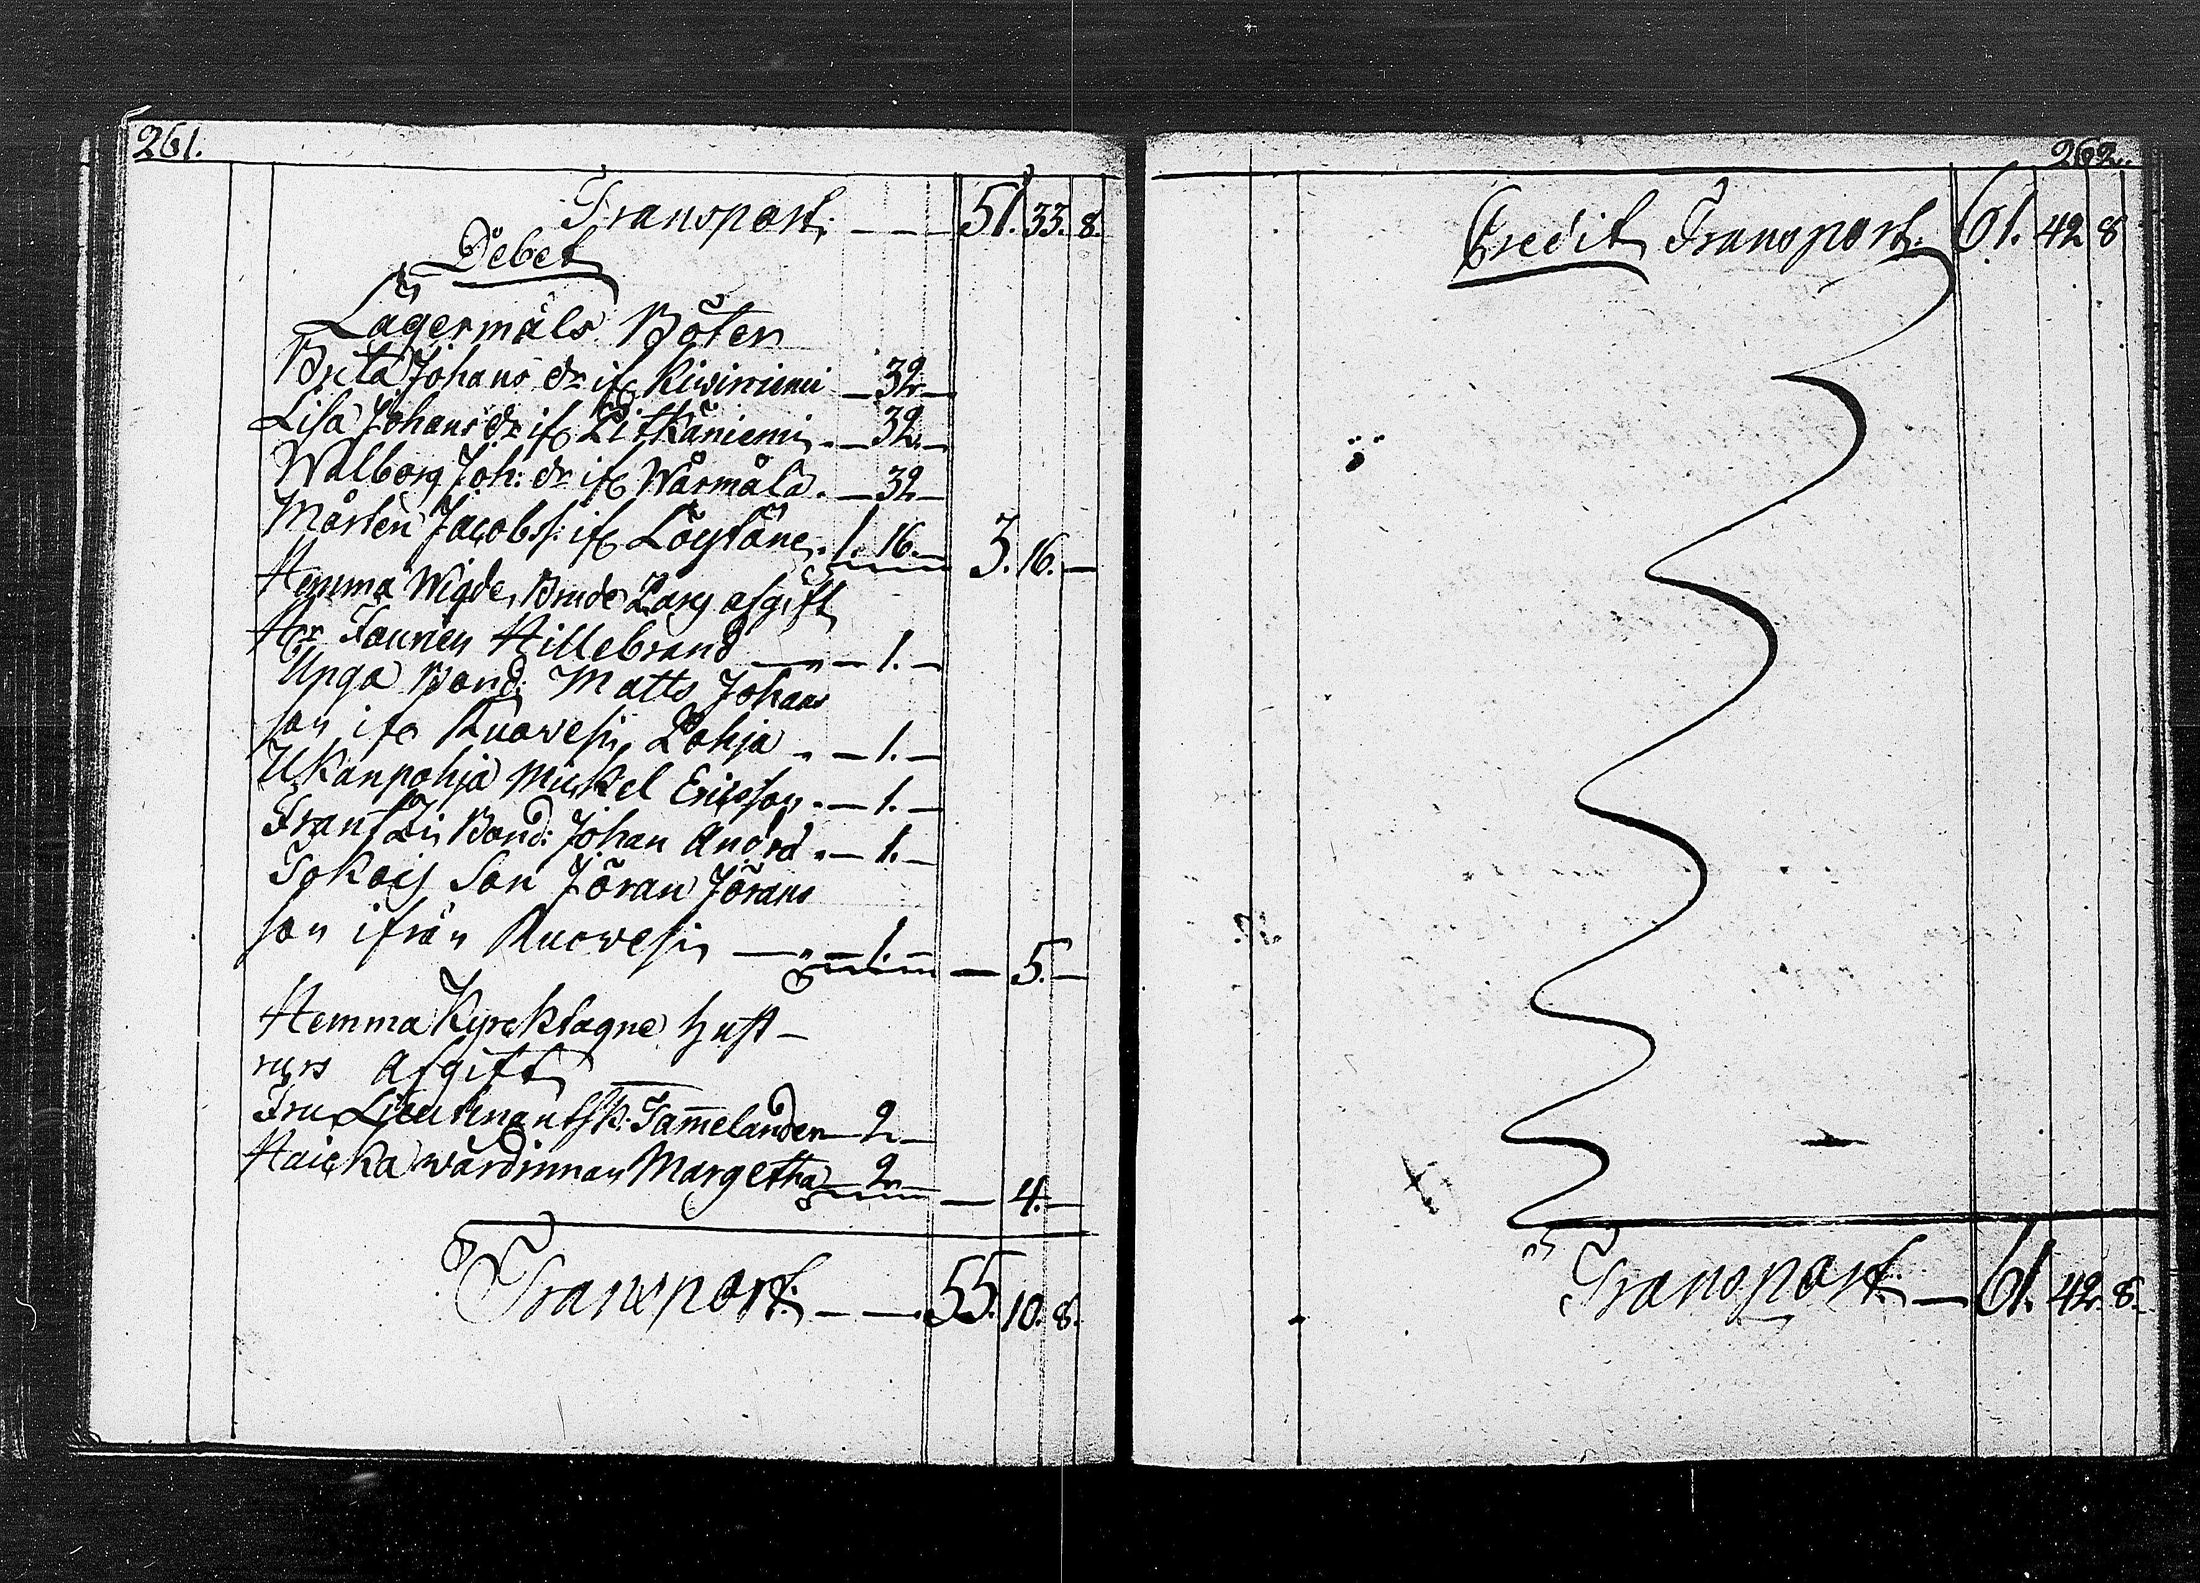 261.
Transport. — — 51. 33. 8.
Debet
Lägermåls Böter
Brita Johans dr if. Kiwiniemi — 32 —
Lisa Johans dr if. Litkäniemi. — 32. —
Walborg Joh: dr if. Wärmälä. — 32 —
Mårten Jacobss: if. Löytäne. 1. 16. — 3. 16. —
Hemma Wigde, Brude Larg afgift
Hr Hillebrand — „ — 1. —
Unga Bond: Matts Johans
son if. Ruowesi, Pohja „ — 1. —
Ukanpohja Mickel Ericsson. — 1. —
Frantzi Bond: Johan And:rs. „ — 1. —
Son Jöran Jörans
son ifrån Ruowesi — „ — 1. — — 5. —
Hemma Kyrcktagne hust-
rurs Afgift
Fru Lieutenantsk: Tam̄elander — 2 —
Haicka wärdinnan Margetha — 2 — — 4. —
Transport. — — . 55. 10. 8.
262.
Credit Transport. 61. 42 8
Transport. — 61. 42. 8.